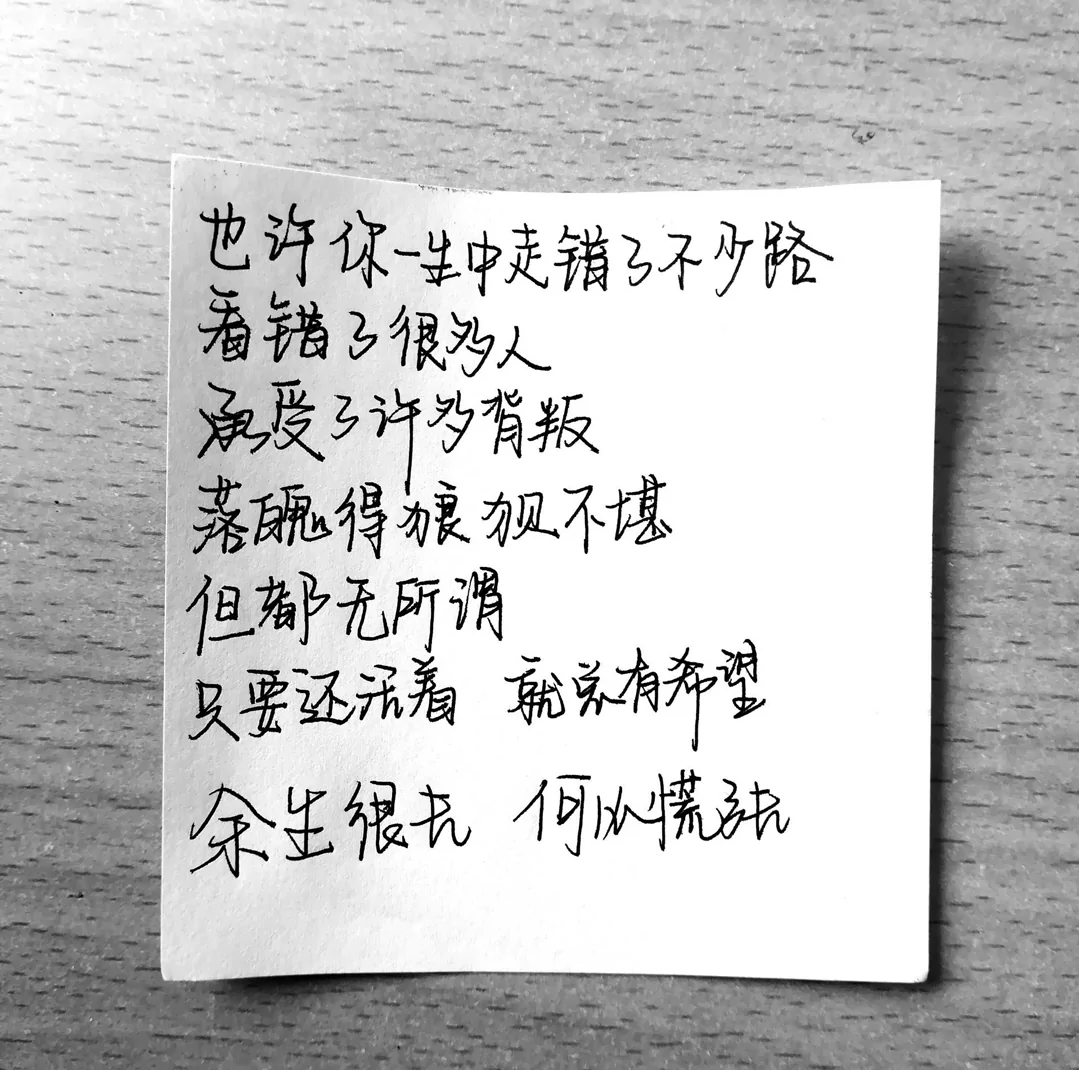 也许你一生中走错了不少路
看错了很多人
承受了许多背叛
落魄得狼狈不堪
但都无所谓
只要还活着 就总有希望
余生很长 何必慌张